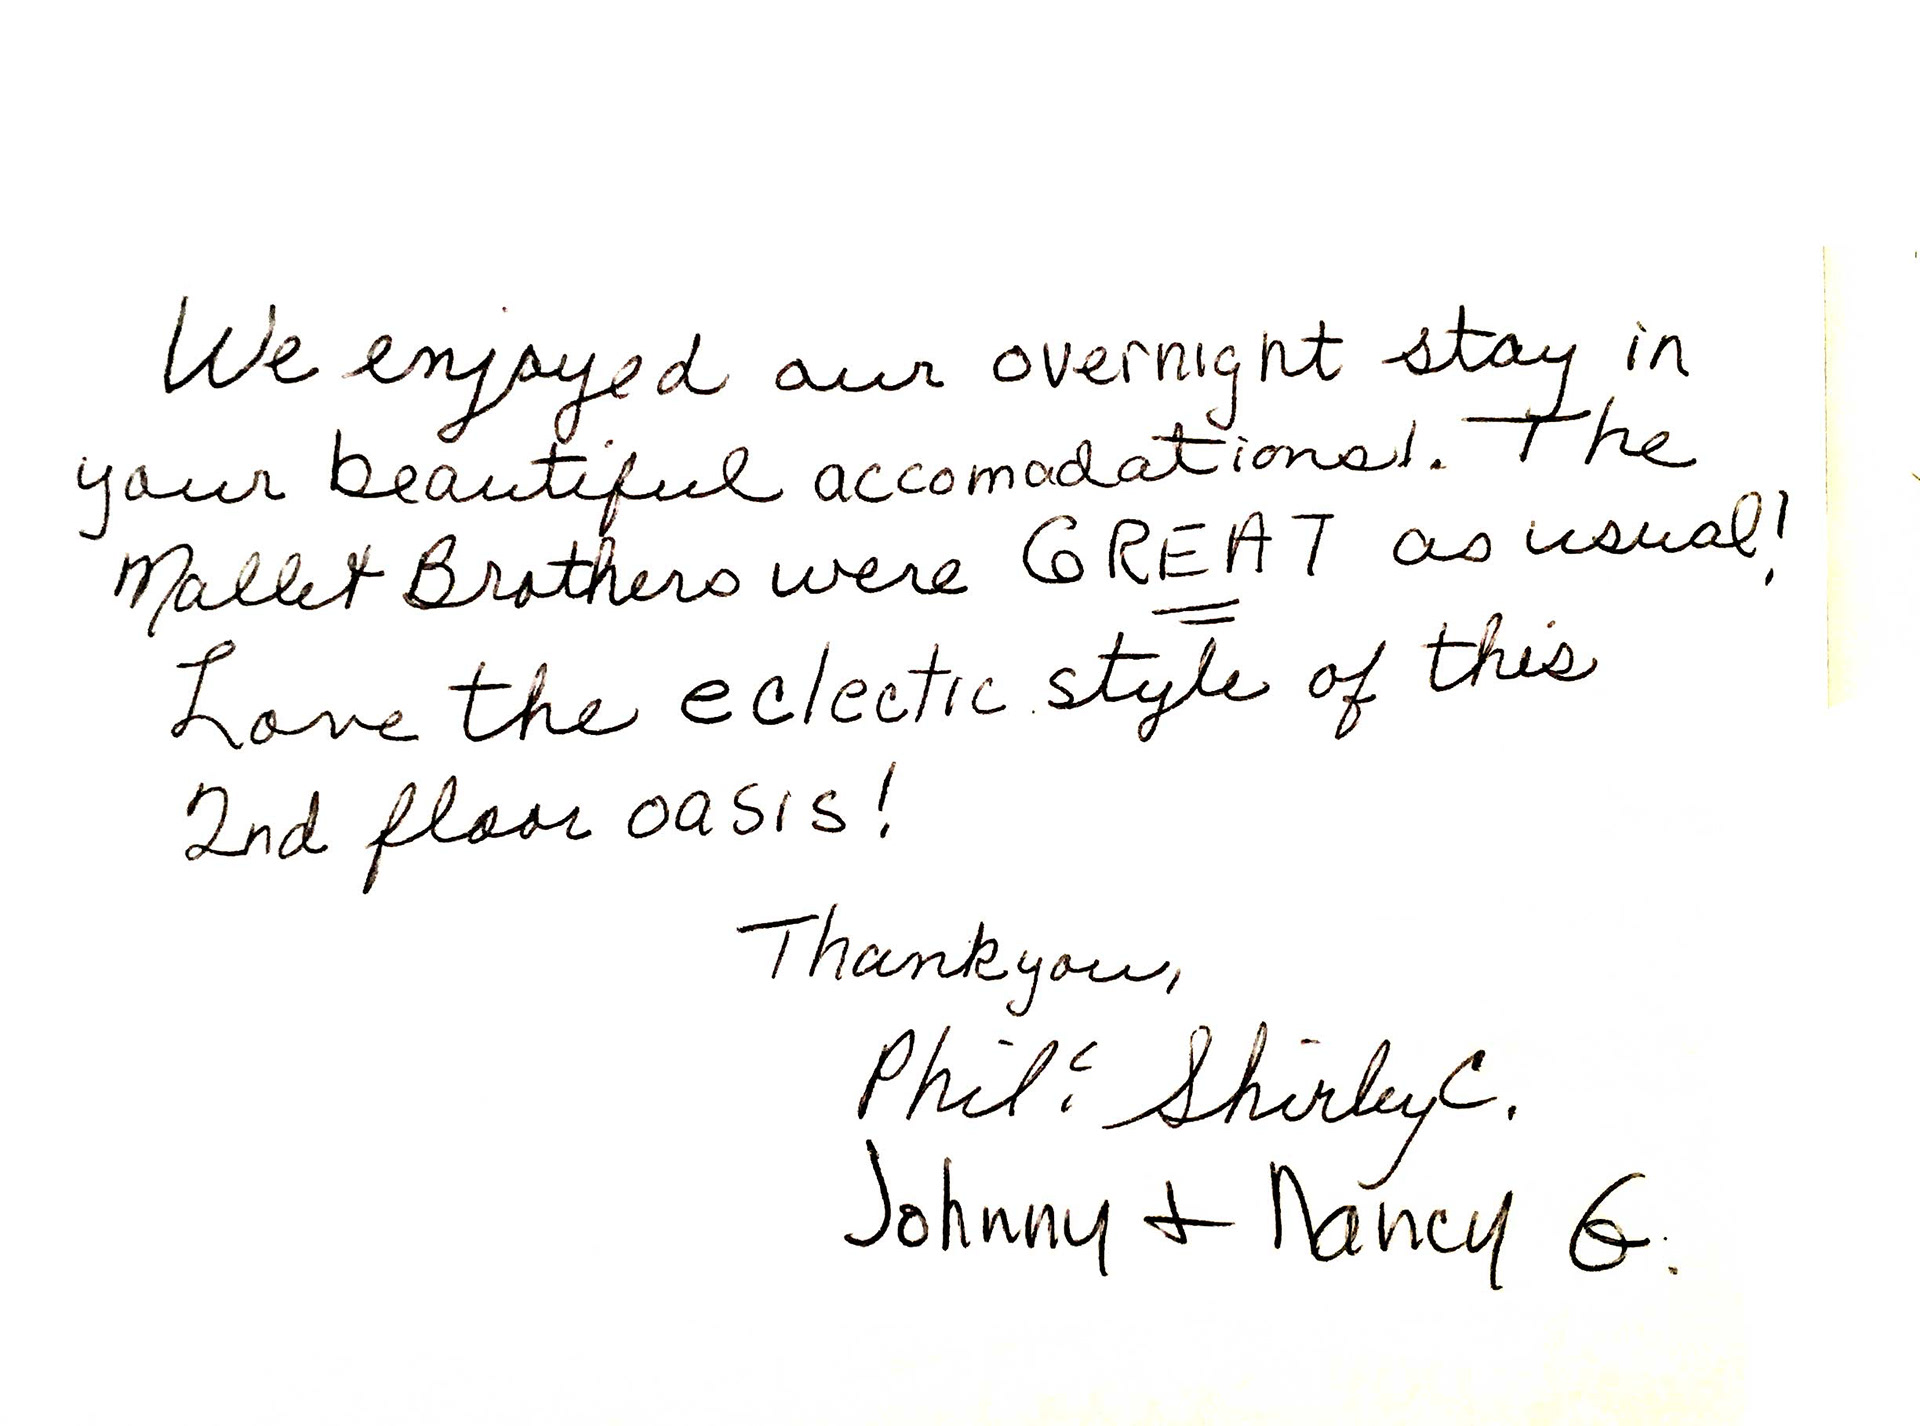 We enjoyed our overnight stay in
your beautiful accomadations!. The
Mallett Brothers were GREAT as usual!
Love the eclectic style of this
2nd floor oasis!
Thank you,
Phil & Shirley C.
Johnny + Nancy G.